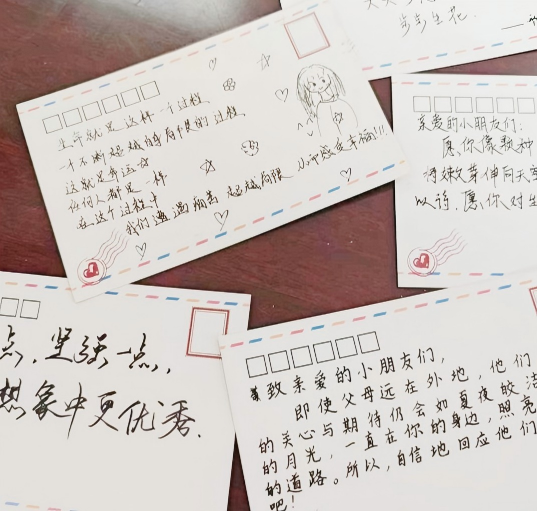 步步生花.
生命就是这样一个过程,
一个不断超越自身局限的过程,
这就是命运
任何人都是一样
在这个过程中
我们遭遇痛苦 超越局限 从而感受幸福!!!
亲爱的小朋友们:
愿你像
将嫩芽伸向天
以诗,愿你对生
点,坚强一点,
想象中更优秀.
致亲爱的小朋友们,
即使父母远在外地,他们
的关心与期待仍会如夏夜皎洁
的月光,一直在你的身边,照亮
的道路。所以,自信地回应他们
吧!